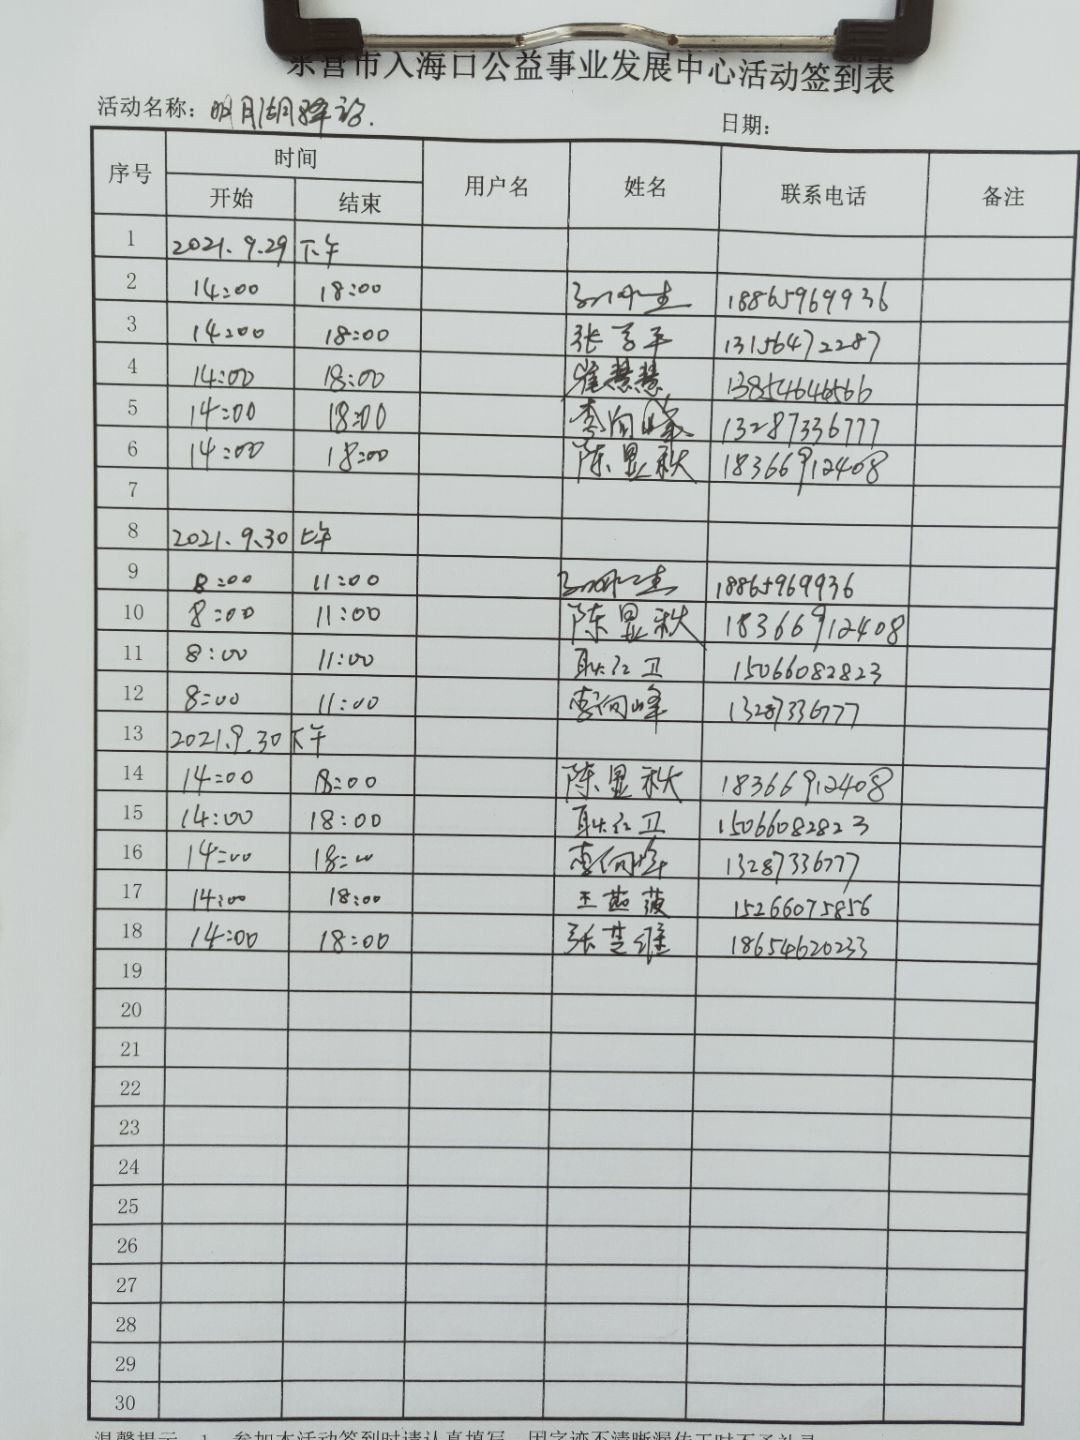 东营市入海口公益事业发展中心活动签到表
活动名称：明月湖
日期：
序号 时间 用户名 姓名 联系电话 备注
开始 结束
1 2021.9.29 下午
2 14:00 18:00 18865969936
3 14:00 18:00 张学平 13156472287
4 14:00 18:00 崔慧慧 13854646566
5 14:00 18:00 李向峰 13287336777
6 14:00 18:00 陈显秋 18366912408
7
8 2021.9.30 上午
9 8:00 11:00 18865969936
10 8:00 11:00 陈显秋 18366912408
11 8:00 11:00 耿红卫 15066082823
12 8:00 11:00 李向峰 13287336777
13 2021.9.30 下午
14 14:00 18:00 陈显秋 18366912408
15 14:00 18:00 耿红卫 15066082823
16 14:00 18:00 李向峰 13287336777
17 14:00 18:00 王 15266075856
18 14:00 18:00 张楚维 18654620233
19
20
21
22
23
24
25
26
27
28
29
30
温馨提示 1、参加本活动签到时请认真填写，因字迹不清晰